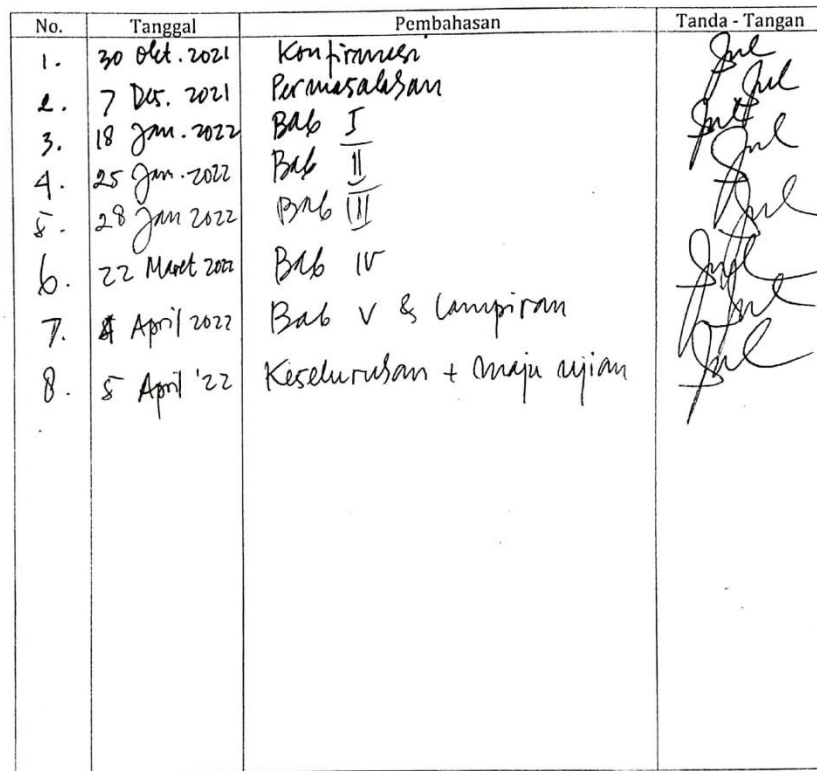 No. Tanggal Pembahasan Tanda - Tangan
1. 30 Okt. 2021 Konfirmasi
2. 7 Des. 2021 Permasalahan
3. 18 Jan. 2022 Bab I
4. 25 Jan. 2022 Bab II
5. 28 Jan 2022 Bab III
6. 22 Maret 2022 Bab IV
7. 4 April 2022 Bab V & Lampiran
8. 5 April '22 Keseluruhan + maju ujian